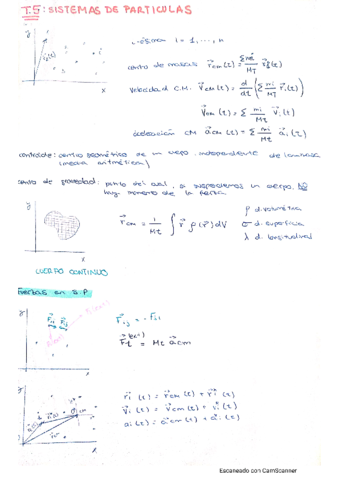 T.5: SISTEMAS DE PARTICULAS
i = 1, ..., n
centro de masas: r⃗cm (t) =
velocidad C.M. V⃗cm (t) = d/dt (Σ mi/MT r⃗i (t))
V⃗cm (t) = Σ mi/MT V⃗i (t)
aceleración CM a⃗cm (t) = Σ mi/MT a⃗i (t)
centroide: centro geométrico de un cuerpo independiente de
(media aritmética)
centro de gravedad: punto del cual, si suspendemos un cuerpo, no
hay momento de la fuerza
r⃗cm = 1/Mt ∫ r⃗ ρ(r⃗) dV
ρ d. volumétrica
σ d. superficie
λ d. longitudinal
CUERPO CONTINUO
Fuerzas en S.P
F⃗ij = - F⃗ji
F⃗t = Mt a⃗cm
r⃗i (t) = r⃗cm (t) + r⃗'i (t)
V⃗i (t) = V⃗cm (t) + v⃗'i (t)
a⃗i (t) = a⃗cm (t) + a⃗'i (t)
Escaneado con CamScanner